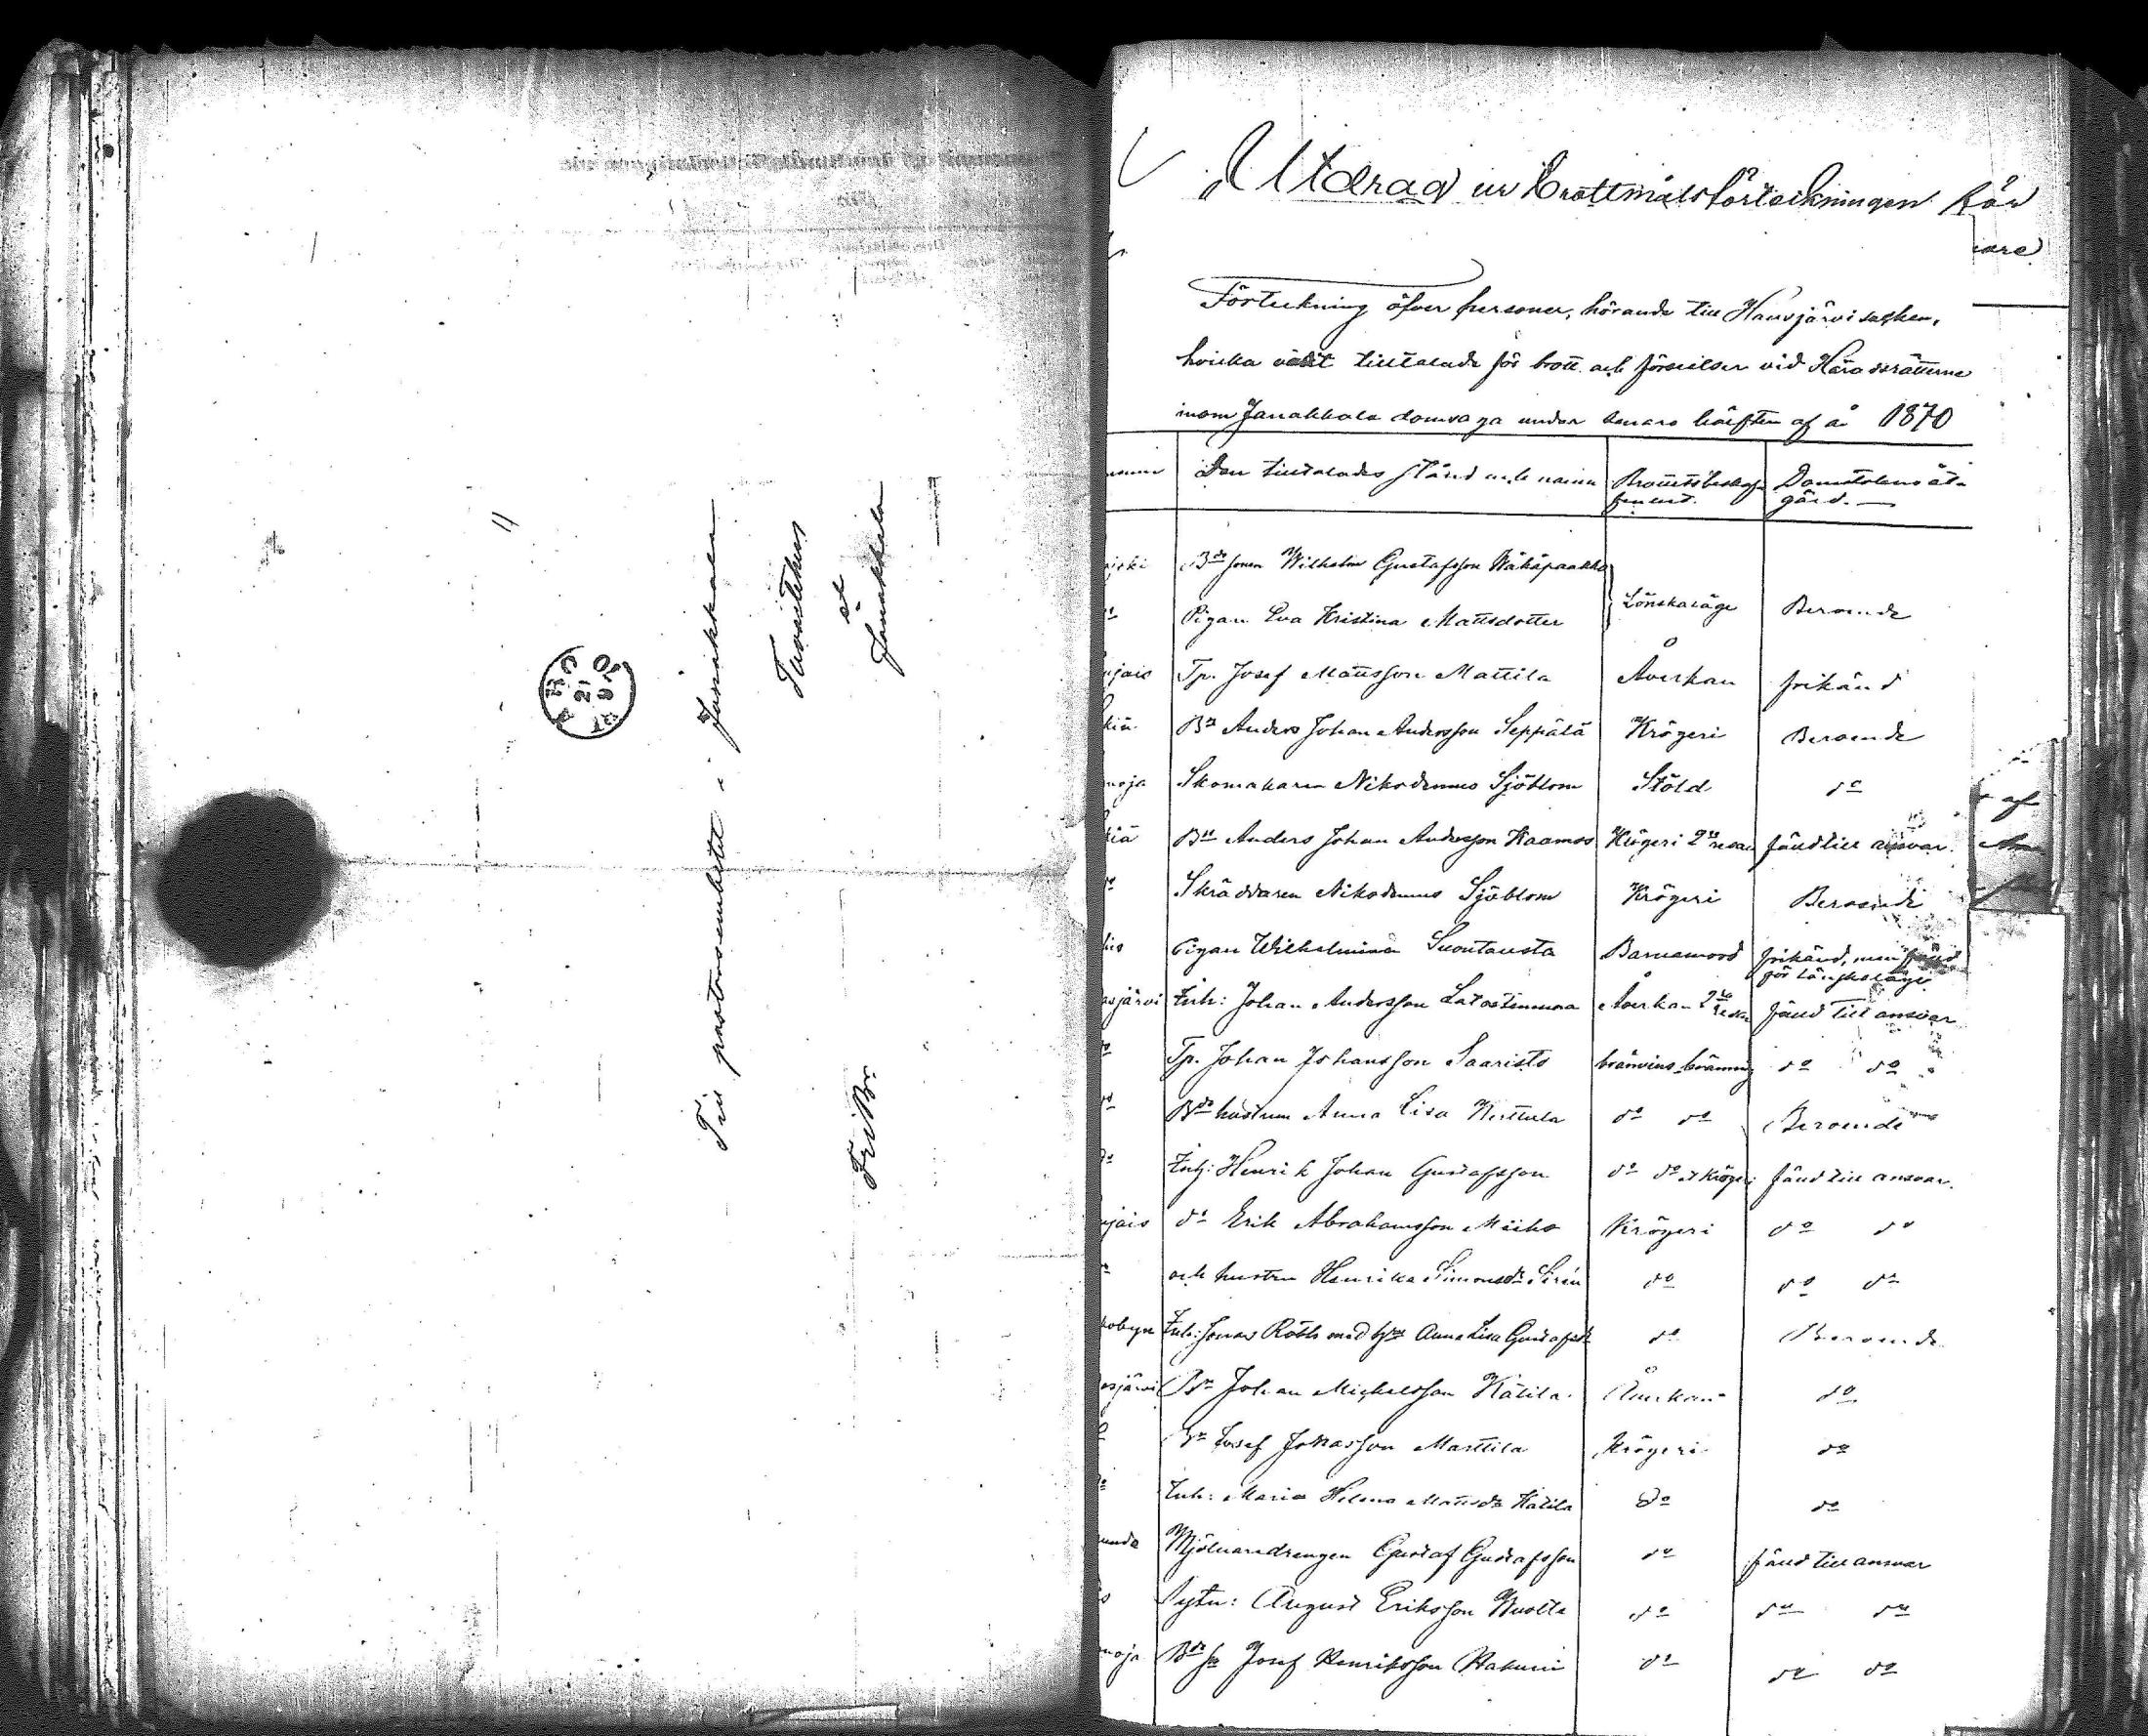 Till pastorsembetet i Janakkala
Tavastehus
et
Janakkala
Fribr.
Utdrag ur brottmålsförteckningen för
Förteckning öfver personer, hörande till Hausjärvi socken,
hvilka varit tilltalade för brott och förseelser vid Häradsrätterne
inom Janakkala domsaga under senare hälften af år 1870
Den tilltalades stånd och namn Brottets beskaffenhet. Domstolens åtgärd.
Bdesonen Wilhelm Gustafsson Wähäpaakka
Pigan Eva Kristina Mattsdotter Lönskaläge Beroende
ujais Tp. Josef Mattsson Mattila Åverkan frikänd
Bn Anders Johan Andersson Seppälä Krögeri Beroende
moja Skomakaren Nikodemus Sjöblom Stöld do
kiä Bn Anders Johan Andersson Kaamos Krögeri 2dra resan fäld till ansvar.
do Skräddaren Nikodemus Sjöblom Krögeri Beroende
Pigan Wilhelmina Suontausta Barnamord frikänd, men fäld
för lönskaläge
asjärvi Inh: Johan Andersson Latostenmaa Åverkan 2dra resan fäld till ansvar
do Tp. Johan Johansson Saaristo bränvinsbränning do do
do Bdehustrun Anna Lisa Kerttula do do Beroende
do Inh: Henrik Johan Gustafsson do do et Krögeri fäld till ansvar.
ujais do Erik Abrahamsson Miiko Krögeri do do
och hustru Henrika Simonsdr Sirén do do do
kobyn Inh: Jonas Röth med hru Anna Lisa Gustafsdr do Beroende
asjärvi Bn Johan Michelsson Kätilä Åverkan do
do Bn Josef Jonasson Marttila Krögeri do
do Inh: Maria Helena Mattsdr Kätilä do do
unda Mjölnaredrengen Gustaf Gustafsson do fäld till ansvar
Sytn: August Eriksson Wuolle do do do
moja Bdesn Josef Henriksson Hakuni do do do